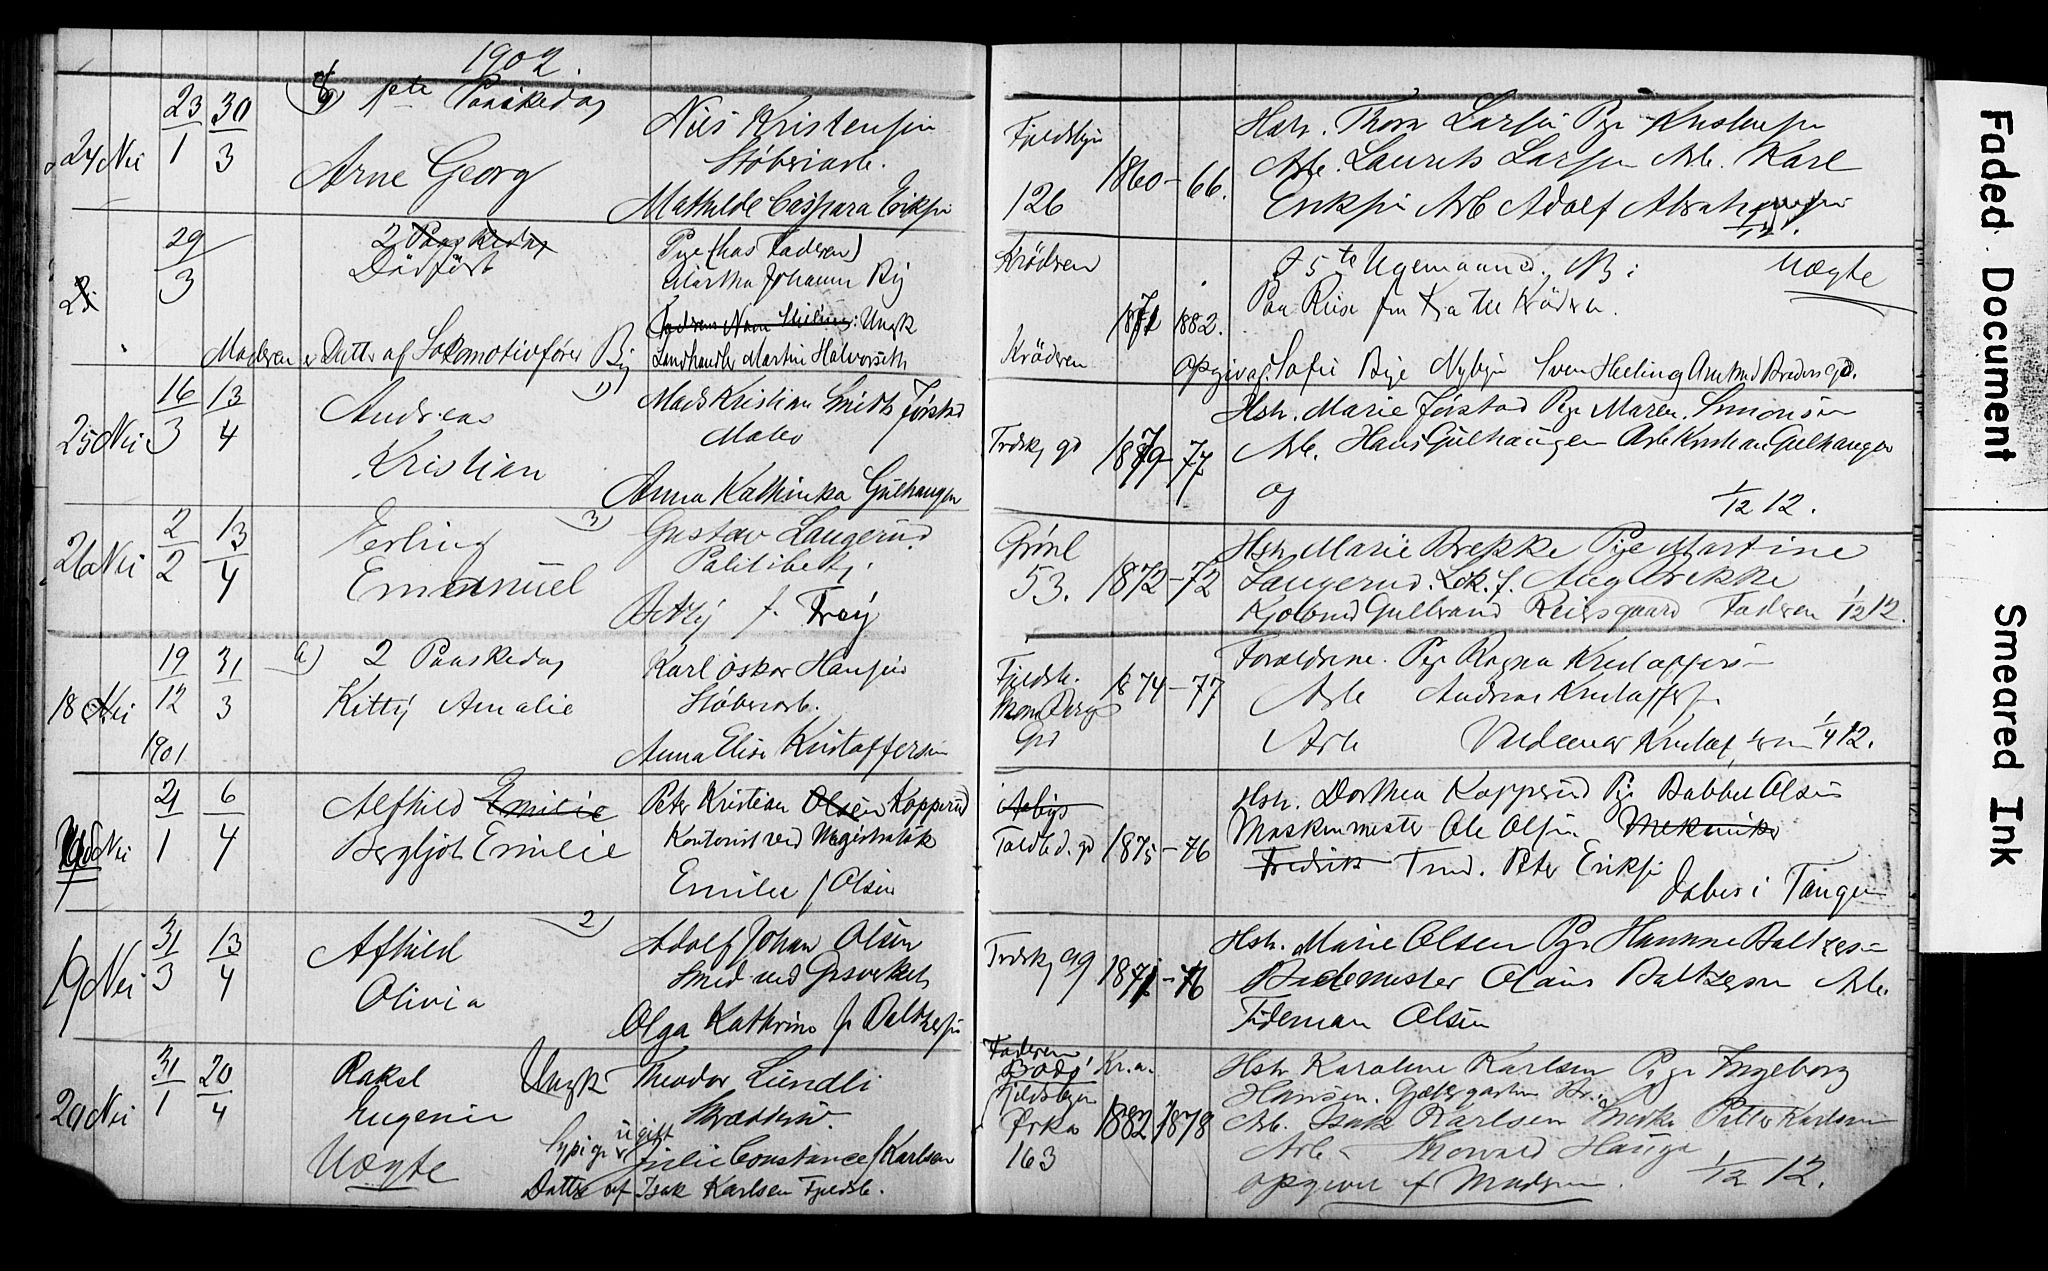 1902.
1ste Paaskedag
24 Nei 23/1 30/3 Arne Georg
Nils Kristensen
Støberiarb.
Mathilde Caspara Eriksen
Fjeldsbyen
126
1860-66.
Hstr. Thora Larsen Pge Kristensen
Arb. Laurits Larsen Arb. Karl
Eriksen Arb Adolf Abrahamsen
29/3
2 Paaskedag
Dødfødt
Pige (hos Faderen)
Martha Johanne Bij
Faderens Navn : Ungk
Moderen er Datter af Lokomotivfører Bij
Landhandler Martin Halvorseth
Krøderen
Krøderen
1871 1882.
I 5te Ugemaaned. NB: Uægte
Paa Reise fra Kra til Krøderen.
opgiv af. Sofie Bije Nybyen
25 Nei 16/3 13/4 Andreas
Kristian
1) Mads Kristian Smith Jørstad
Maler
Anna Kathinka Gulhaugen
Trdskj gd
1879-77
Hstr. Marie Jørstad Pge Maren Simonsen
Arb. Hans Gulhaugen Arb Kristian Gulhaugen
og
1/12 12.
26 Nei 2/2 13/4 Erling
Emanuel
3) Gustav Langerud
Politibetj.
Betzij f. Frøij
Grønl
53.
1872-72
Hstr Marie Brekke Pge Martine
Langerud. Lok.f. Aug Brekke
Gulbrand Reiersgaard Faderen 1/12 12.
18 Nei 19/12 31/3
1901
a) 2 Paaskedag
Kittij Amalie
Karl Oskar Hansen
Støberiarb.
Anna Elise Kristoffersen
Fjeldsb.
Berg
Gd
1874-77
Forældrene. Pge Ragna Kristoffersen
Arb Andreas Kristoffersen
Arb Valdemar Kristoffersen 1/4 12.
Nei 21/1 6/4 Alfhild Emilie
Bergljot Emilie
Peter Kristian Olsen Kopperud
Kontorist ved Magistratsk
Emilie f Olsen
Toldbd. gd
1875-76
Hstr. Dorthea Kopperud Pge Babbet Olsen
Maskinmester Ole Olsen Mekaniker
Fredrik Tmd. Peter Eriksen
Døbes i Tangen
19 Nei 31/3 13/4 Afhild
Olivia
2) Adolf Johan Olsen
Smed ved Gasverket
Olga Kathrine f Baltzersen
Trdskj 99
1871-76
Hstr. Marie Olsen Pge Hanne Baltzersen
Bademester Olaus Baltzersen Arb.
Tideman Olsen
20 Nei 31/1 20/4 Rakel
Eugenie
Uægte
Ungk Theodor Lundli
Skrædder
ugift
Sypige Julie Constance Karlsen
Datter af Isak Karlsen Fjeldsb.
Faderen
Bodø
Fjeldsbyen
Ørka
163
Kr.a.
1882 1878
Hstr Karoline Karlsen Pge Ingeborg
Hansen.
Arb. Isak Karlsen Petter Karlsen
Arb. Thorvald Hauge
opgivet af Moderen. 1/12 12.
Faded Document Smeared Ink